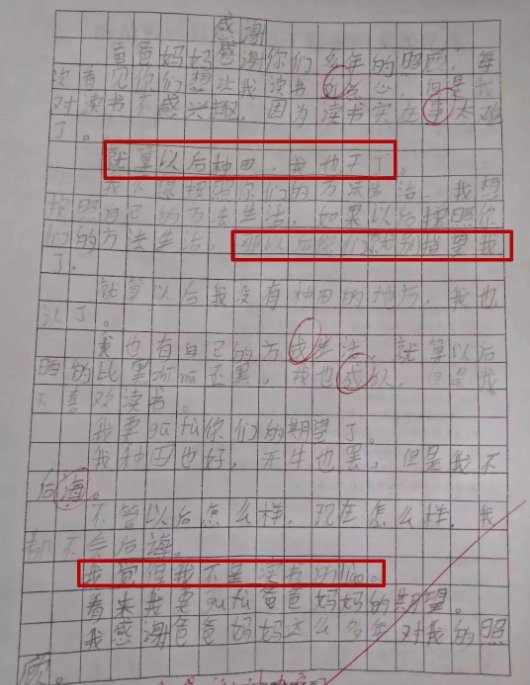 感谢
爸爸妈妈感谢你们多年的照顾，每
次看见你们想让我读书 心，但是我
对读书不感兴趣，因为读书实在 太难
了。
就算以后种田，我也干了，
我不想按照你们的方法生活，我想
按照自己的方法生活，如果以后按照你
们的方法生活，那以后你们就别指望我
了。
就算以后我没有种田的地方，我也
认了。
我也有自己的方 生活，就算以后
晒的比黑 还黑，我也 以，但是我
不喜欢读书。
我要gū fù你们的期望了。
我种田也好，开牛也罢，但是我不
后海。
不管以后怎么样，现在怎么样，我
都不会后海。
我觉得我不是读书的liào。
看来我要gū fù爸爸妈妈的期望。
我感谢爸爸妈妈这么多年对我的照
顾。